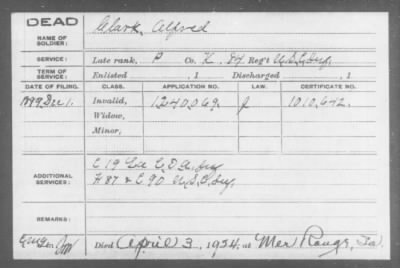 DEAD
NAME OF SOLDIER: Clark, Alfred
SERVICE: Late rank, P Co. K, 84 Reg't U.S.C. Inf.
TERM OF SERVICE: Enlisted , 1 Discharged , 1
DATE OF FILING. CLASS. APPLICATION NO. LAW. CERTIFICATE NO.
1899 Dec 1. Invalid, 1240,069. 1010,642.
Widow,
Minor,
ADDITIONAL SERVICES:
Inf.
H 87 & C 90 U.S.C. Inf.
REMARKS:
Died April 3, 1924, at Mer Rouge, La.